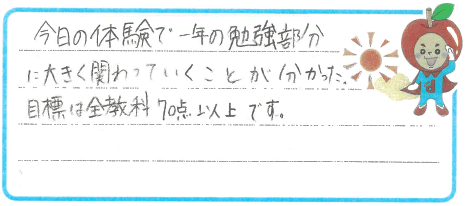 今日の体験で一年の勉強部分
に大きく関わっていくことが分かった.
目標は全教科70点以上です。